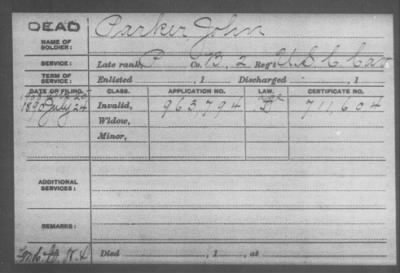 DEAD
NAME OF SOLDIER: Parker John
SERVICE: Late rank, P Co. B, 2 Reg't U.S.C. Cav
TERM OF SERVICE: Enlisted , 1 Discharged , 1
DATE OF FILING. CLASS. APPLICATION NO. LAW. CERTIFICATE NO.
1890 July 24 Invalid, 963,794 D 711,604
Widow,
Minor,
ADDITIONAL SERVICES:
REMARKS:
Died , 1 , at